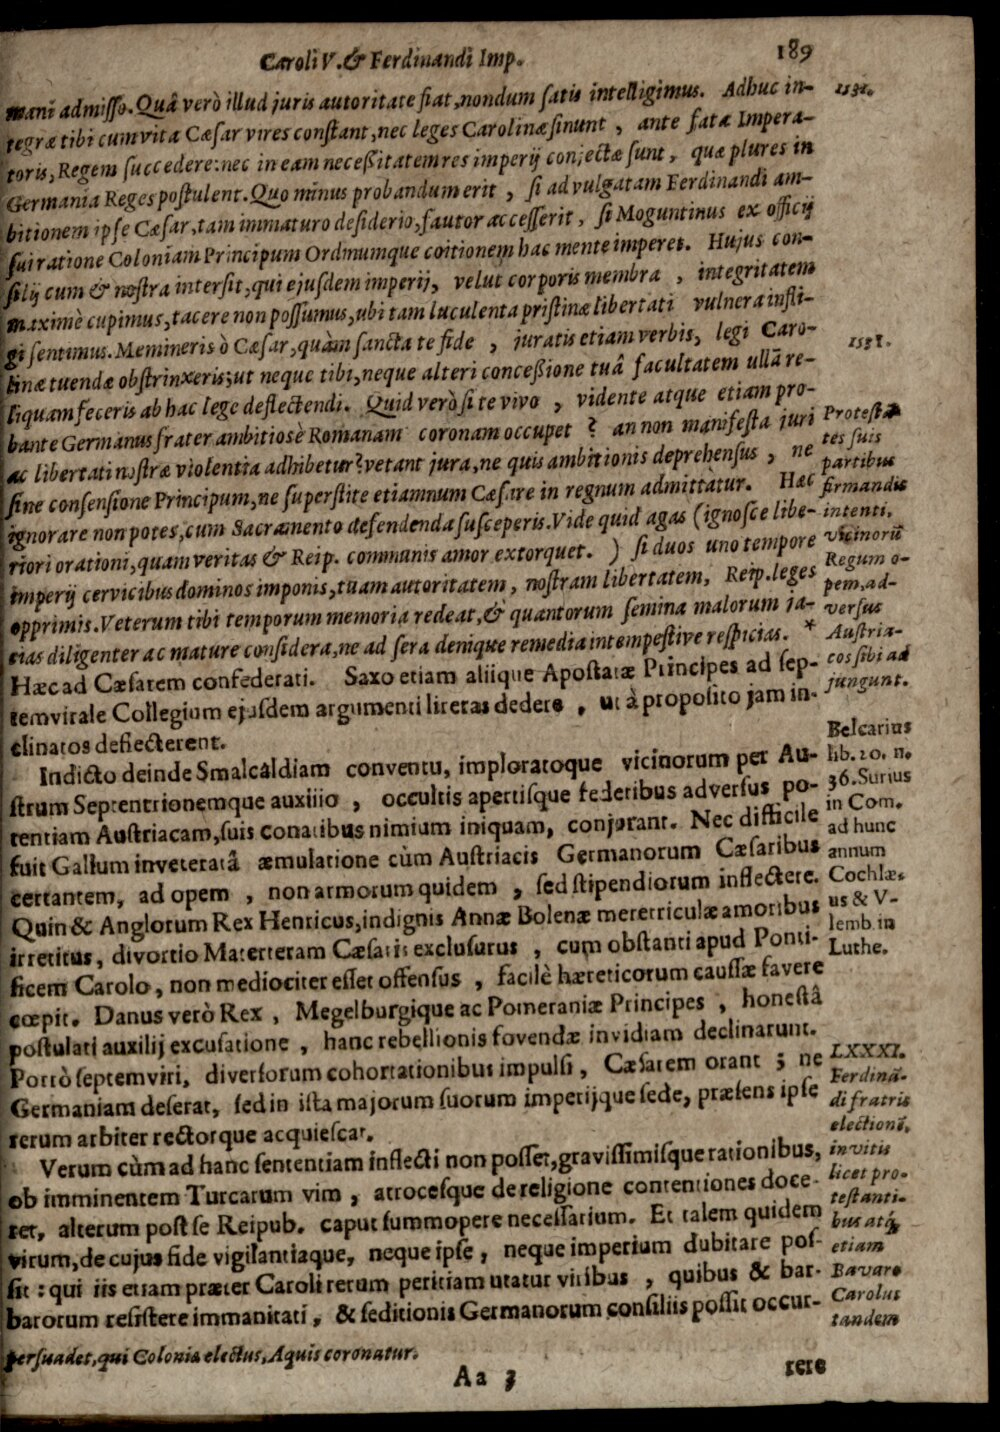 Caroli V. & Ferdinandi Imp. 189
mani admisso. Quâ verò illud juris autoritate fiat, nondum satis intelligimus. Adhuc in-
tegræ tibi cum vita Cæsar vires constant, nec leges Carolinæ sinunt, ante fata Impera-
toris, Regem succedere: nec in eam necessitatem res imperij conjectæ sunt, quæ plures in
Germania Reges postulent. Quo minus probandum erit, si ad vulgatam Ferdinandi am-
bitionem ipse Cæsar, tam immaturo desiderio, fautor accesserit, si Moguntinus ex officij
sui ratione Coloniam Principum Ordinumque coitionem hac mente imperet. Hujus con-
silij cum & nostra intersit, qui ejusdem imperij, velut corporis membra, integritatem
maximè cupimus, tacere non possumus, ubi tam luculenta pristinæ libertati vulnera infli-
gi sentimus. Memineris ô Cæsar, quàm sancta te fide, juratis etiam verbis, legi Caro-
linæ tuendæ obstrinxeris; ut neque tibi, neque alteri concessione tuâ facultatem ullã re-
liquam feceris ab hac lege deflectendi. Quid verò si te vivo, vidente atque etiam pro-
bante Germanus frater ambitiosè Romanam coronam occupet? an non manifesta juri
ac libertati nostræ violentia adhibetur? vetant jura, ne quis ambitionis deprehensus, ne
sine consensione Principum, ne superstite etiamnum Cæsare in regnum admittatur. Hæc
ignorare non potes, cum Sacramento defendenda susceperis. Vide quid agas (ignosce libe-
riori orationi, quam veritas & Reip. communis amor extorquet. ) si duos uno tempore
imperij cervicibus dominos imponis, tuam autoritatem, nostram libertatem, Reip. leges
opprimis. Veterum tibi temporum memoria redeat, & quantorum semina malorum ja-
cias diligenter ac mature considera, ne ad sera denique remedia intempestive respicias. *
Hæc ad Cæsarem confederati. Saxo etiam aliique Apostatæ Principes ad sep-
temvirale Collegium ejusdem argumenti literas dedere, ut à proposito jam in-
clinatos deflecterent.
Indicto deinde Smalcaldiam conventu, imploratoque vicinorum per Au-
strum Septentrionemque auxilio, occultis apertisque federibus adversus po-
tentiam Austriacam, suis conatibus nimium iniquam, conjurant. Nec difficile
fuit Gallum inveteratâ æmulatione cùm Austriacis Germanorum Cæsaribus
certantem, ad opem, non armorum quidem, sed stipendiorum inflectere.
Quin & Anglorum Rex Henricus, indignis Annæ Bolenæ meretriculæ amoribus
irretitus, divortio Materteram Cæsaris exclusurus, cum obstanti apud Ponti-
ficem Carolo, non mediociter esset offensus, facilè hæreticorum caussæ favere
cœpit. Danus verò Rex, Megelburgique ac Pomeraniæ Principes, honestâ
postulati auxilij excusatione, hanc rebellionis fovendæ invidiam declinarunt.
Porrò septemviri, diversorum cohortationibus impulsi, Cæsarem orant; ne
Germaniam deserat, sed in ista majorum suorum imperijque sede, præsens ipse
rerum arbiter rectorque acquiescat.
Verum cùm ad hanc sententiam inflecti non posset, gravissimisque rationibus,
ob imminentem Turcarum vim, atrocesque de religione contentiones doce-
ret, alterum post se Reipub. caput summopere necessarium. Et talem quidem
virum, de cujus fide vigilantiaque, neque ipse, neque imperium dubitare pos-
sit: qui iis etiam præter Caroli rerum peritiam utatur viribus, quibus & bar-
barorum resistere immanitati, & seditionis Germanorum consiliis possit occur-
persuadet, qui Colonia electus, Aquis coronatur.
Aa 3 rere
1531.
1531.
Protestã
tes suis
partibus
firmandis
intenti,
vicinorũ
Regum o-
pem, ad-
versus
Austria-
cos sibi ad
jungunt.
Belcarius
lib. 20. n.
36. Surius
in Com.
ad hunc
annum
Cochlæ-
us & V-
lemb. in
Luthe.
LXXXI.
Ferdinã-
di fratris
electionẽ,
invitis
licet pro-
testanti-
bus atq;
etiam
Bavaro
Carolus
tandem